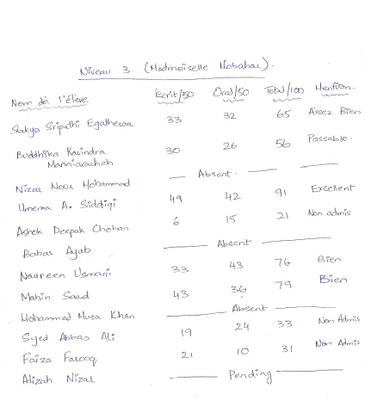 Niveau 3 (Madmoiselle Mobahou).
Nom de l'élève Écrit/50 Oral/50 Total/100 Mention.
Sripathi 33 32 65 Assez Bien
Buddhika Kavindra 30 26 56 Passable.
Manniarachch
Nizar Noor Mohammad Absent.
Umema A. Siddiqi 49 42 91 Excellent
Ashok Deepak Chohan 6 15 21 Non admis
Babar Ayab Absent
Naureen Usmani 33 43 76 Bien
Mahin Saad 43 36 79 Bien
Mohammed Musa Khan Absent
Syed Abbas Ali 19 24 33 Non Admis
Faiza Farooq 21 10 31 Non Admis
Alizah Nizar Pending